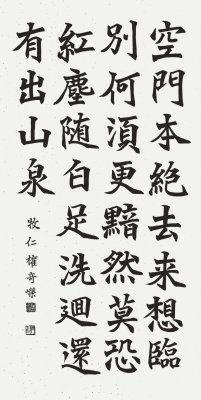 空門本絕去来想臨
別何須更黯然莫恐
紅塵随白足洗迴還
有出山泉
牧仁權奇嶸